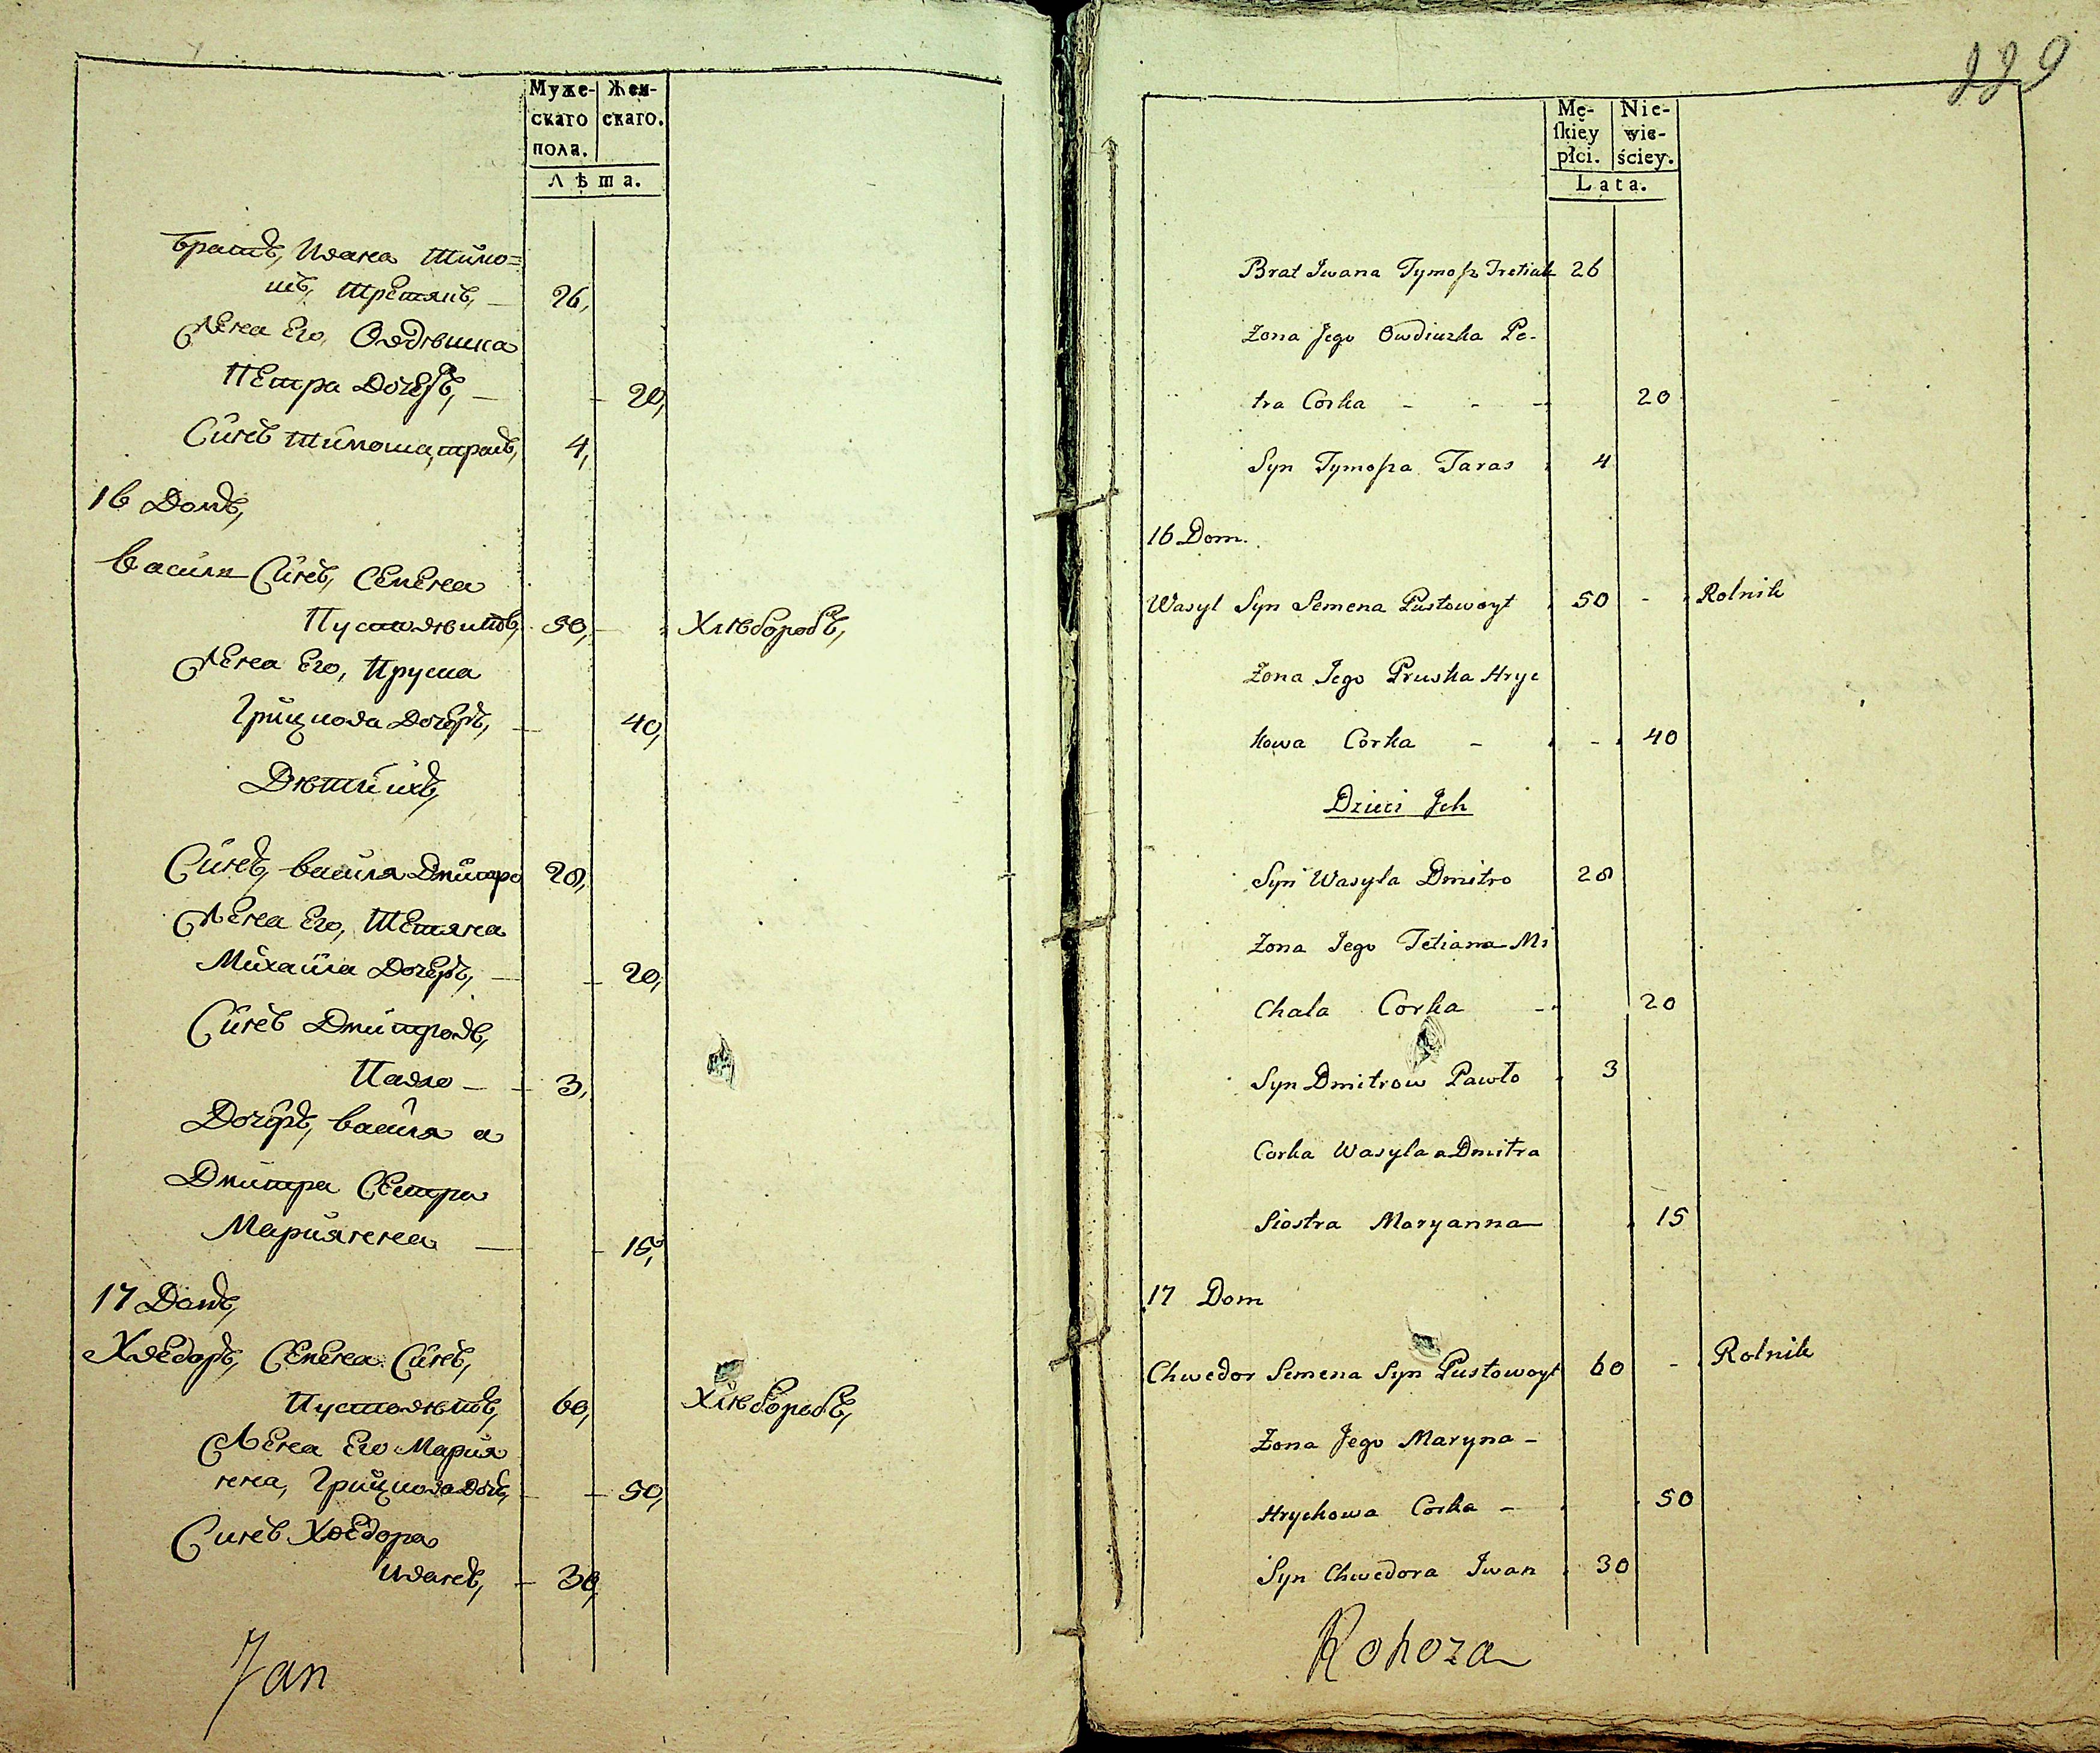 Муже-
скаго
пола.
Жен-
скаго.
Лѣта.
братъ, Ивана Тимо=
шъ, Третякъ, — 26,
Жена Его, Овдѣшка
Петра Дочеръ, — 20,
Синъ Тимоша, 4,
16 Домъ,
Василь Синъ, Семена
Пустовѣтъ, 50, — Хлѣборобъ,
Жена Его, Пруска
Грицкова Дочеръ, — 40,
Дѣти ихъ,
Синъ, Василя Дмитро 28,
Жена Его, Тетяна
Михайла Дочеръ, — 20,
Синъ Дмитровъ,
Павло — 3,
Дочеръ, Василя а
Дмитра Сестра
Мариянна — 15,
17 Домъ,
Хведоръ, Семена Синъ,
Пустовѣтъ, 60, Хлѣборобъ,
Жена Его Мария
нна, Грицкова Доч, — 50,
Синъ Хведора
Иванъ, — 30,
Jan
119
Mę-
ſkiey
płci.
Nie-
wie-
ściey.
Lata.
Brat Jwana Tymosz Tretiak 26
Zona Jego Owdiuzka Pe-
tra Corka - - - 20
Syn Tymosza Taras 4
16 Dom.
Wasyl Syn Semena Pustowoyt 50 - Rolnik
Zona Jego Pruska Hryc
kowa Corka - - 40
Dzieci Jch
Syn Wasyla Dmitro 28
Zona Jego Tetianna Mi
chala Corka - 20
Syn Dmitrow Pawło 3
Corka Wasyla a Dmitra
Siostra Maryanna 15
17 Dom
Chwedor Semena Syn Pustowoyt 60 - Rolnik
Zona Jego Maryna -
Hryckowa Corka - 50
Syn Chwedora Jwan 30
Rohoza